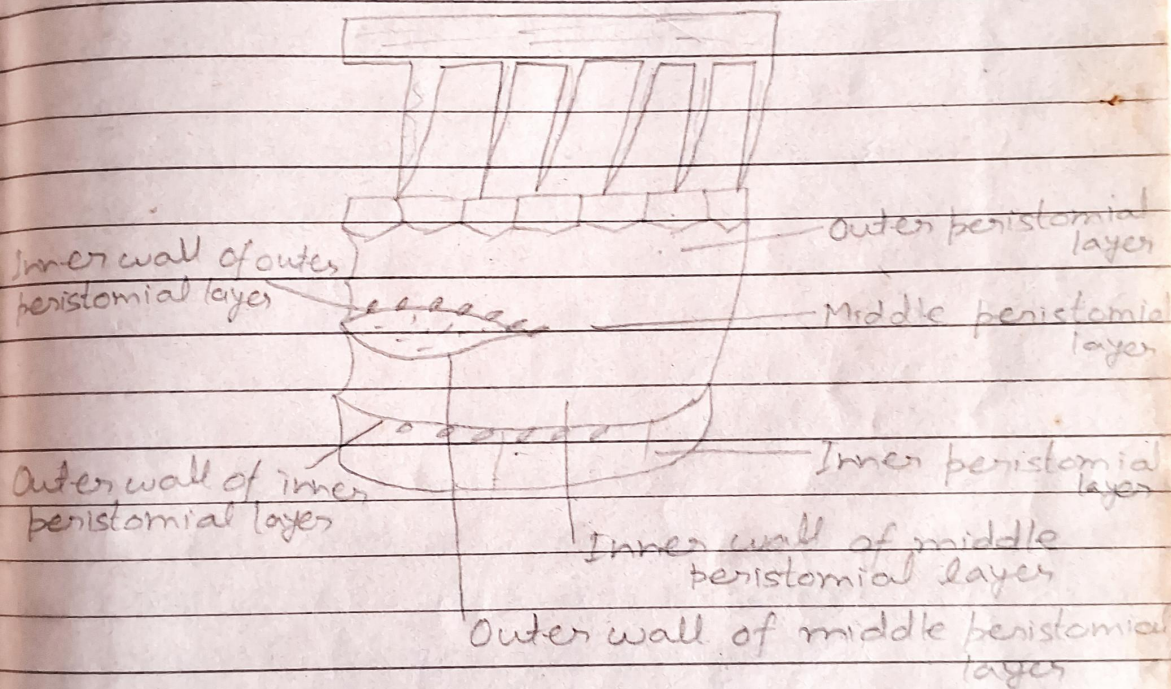 Outer peristomial
layer
Inner wall of outer
peristomial layer
Middle peristomia
layer
Inner peristomial
layer
Outer wall of inner
peristomial layer
Inner wall of middle
peristomial layer
Outer wall of middle peristomia
layer